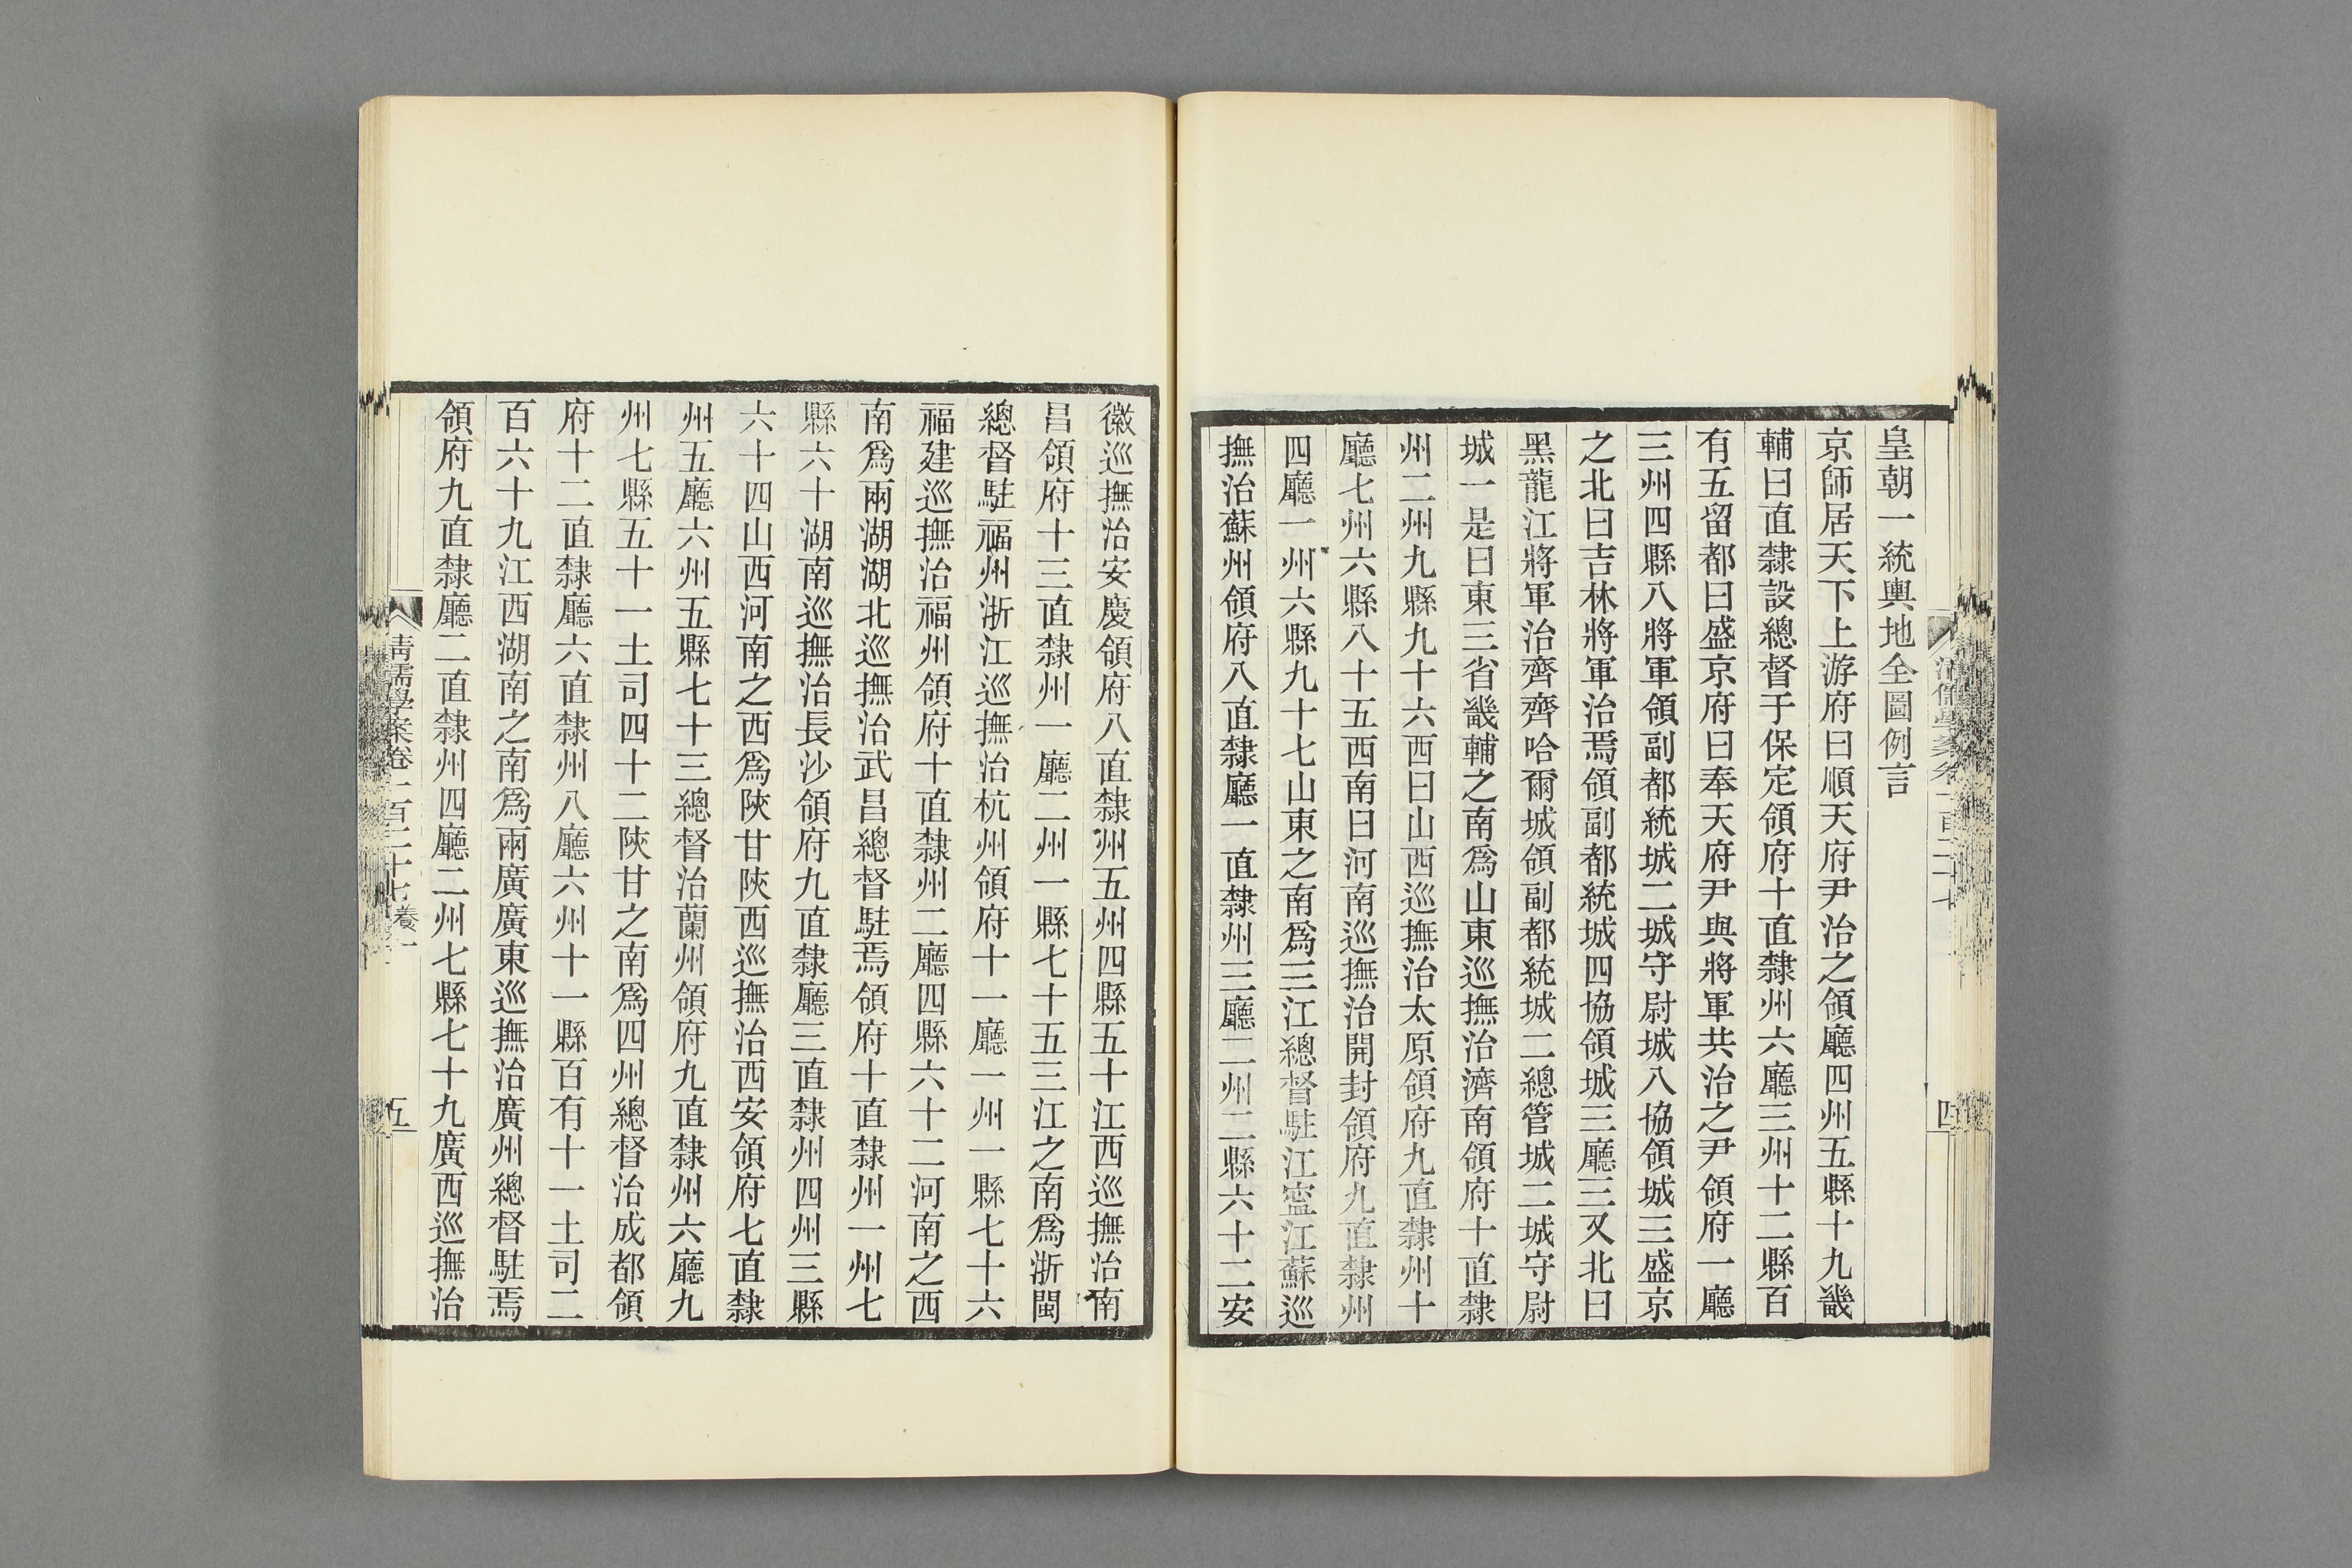 皇朝一統輿地全圖例言
京師居天下上游府曰順天府尹治之領廳四州五縣十九畿
輔曰直隸設總督于保定領府十直隸州六廳三州十二縣百
有五留都曰盛京府曰奉天府尹與將軍共治之尹領府一廳
三州四縣八將軍領副都統城二城守尉城八協領城三盛京
之北曰吉林將軍治焉領副都統城四協領城三廳三又北曰
黑龍江將軍治齊齊哈爾城領副都統城二總管城二城守尉
城一是曰東三省畿輔之南爲山東巡撫治濟南領府十直隸
州二州九縣九十六西曰山西巡撫治太原領府九直隸州十
廳七州六縣八十五西南曰河南巡撫治開封領府九直隸州
四廳一州六縣九十七山東之南爲三江總督駐江寍江蘇巡
撫治蘇州領府八直隸廳一直隸州三廳二州二縣六十二安
徽巡撫治安慶領府八直隸州五州四縣五十江西巡撫治南
昌領府十三直隸州一廳二州一縣七十五三江之南爲浙閩
總督駐福州浙江巡撫治杭州領府十一廳一州一縣七十六
福建巡撫治福州領府十直隸州二廳四縣六十二河南之西
南爲兩湖湖北巡撫治武昌總督駐焉領府十直隸州一州七
縣六十湖南巡撫治長沙領府九直隸廳三直隸州四州三縣
六十四山西河南之西爲陝甘陝西巡撫治西安領府七直隸
州五廳六州五縣七十三總督治蘭州領府九直隸州六廳九
州七縣五十一土司四十二陝甘之南爲四州總督治成都領
府十二直隸廳六直隸州八廳六州十一縣百有十一土司二
百六十九江西湖南之南爲兩廣廣東巡撫治廣州總督駐焉
領府九直隸廳二直隸州四廳二州七縣七十九廣西巡撫治
清儒學案卷一百二十七
五